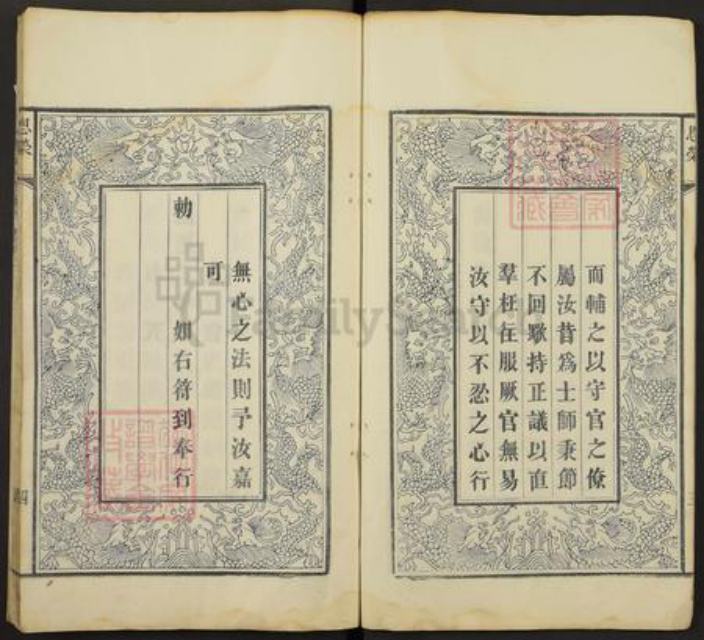 而輔之以守官之僚
屬汝昔爲士師秉節
不回歟持正議以直
羣枉往服厥官無易
汝守以不忍之心行
無心之法則予汝嘉
可
勅
如右符到奉行
恩榮
四
FamilySearch